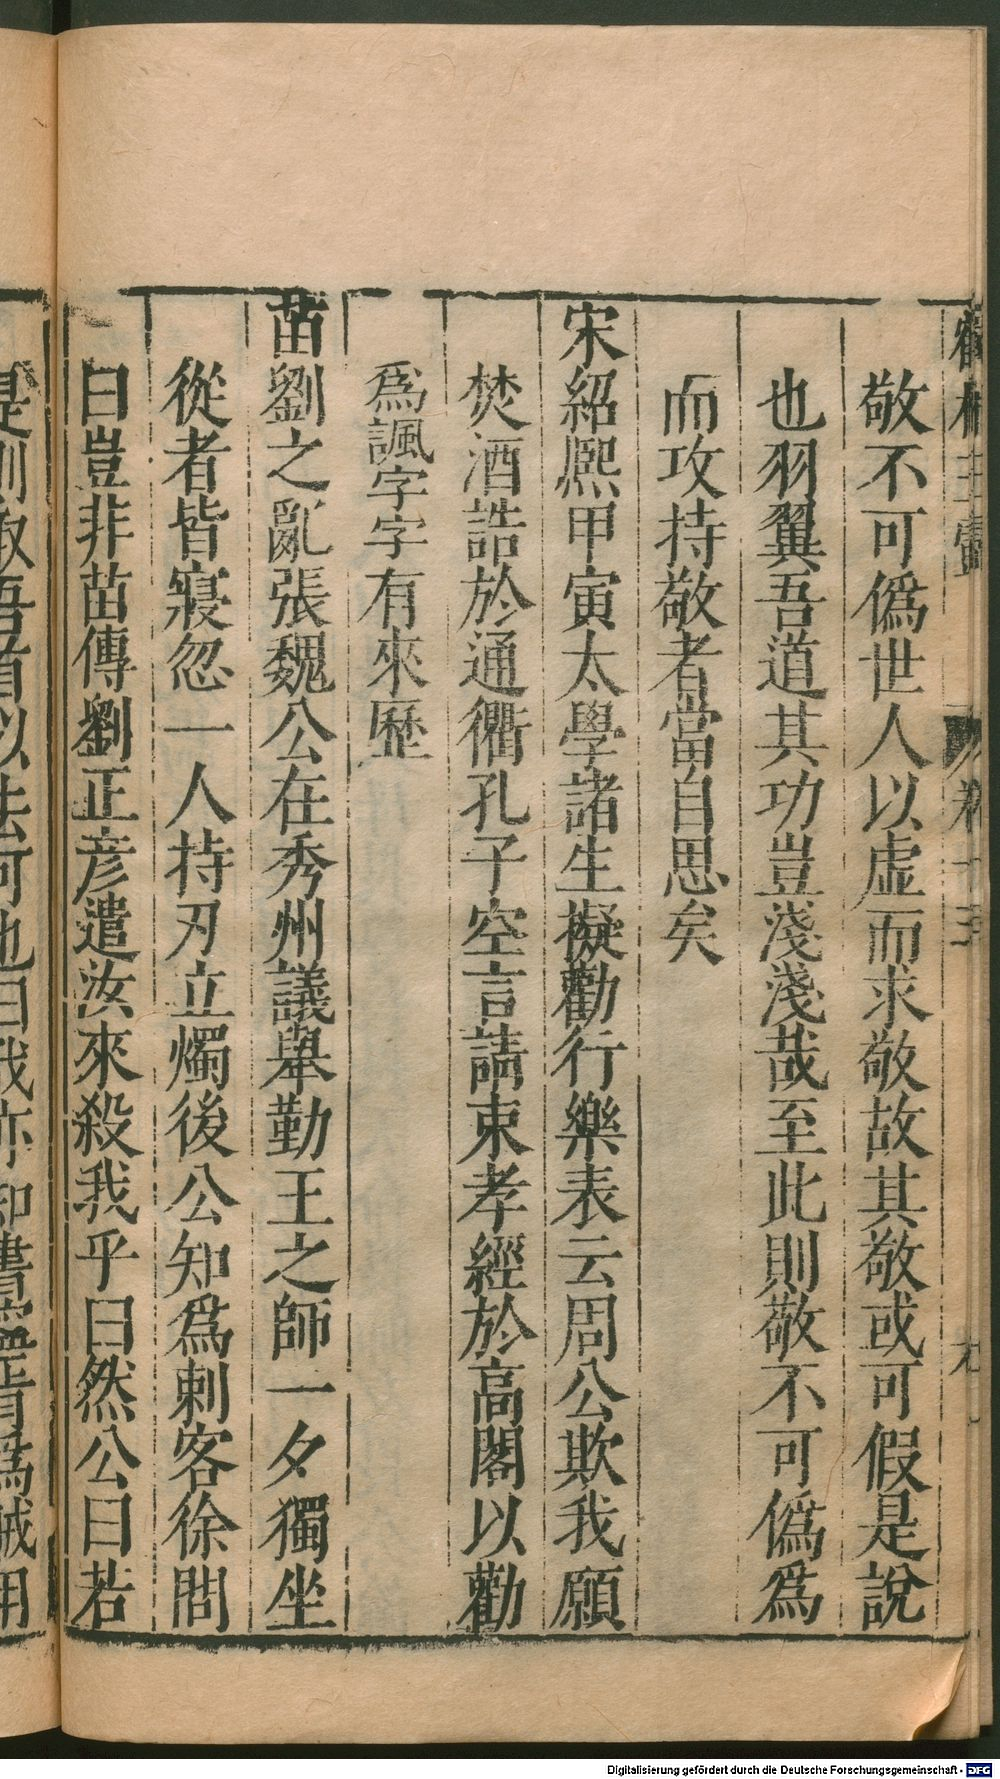 鶴林玉露 卷十三
敬不可僞世人以虛而求敬故其敬或可假是說
也羽翼吾道其功豈淺淺哉至此則敬不可僞爲
而攻持敬者當自思矣
宋紹熈甲寅太學諸生擬勸行樂表云周公欺我願
焚酒誥於通衢孔子空言請束孝經於高閣以勸
爲諷字字有來歷
苗劉之亂張魏公在秀州議舉勤王之師一夕獨坐
從者皆寢忽一人持刃立燭後公知爲刺客徐問
曰豈非苗傳劉正彥遣汝來殺我乎曰然公曰若
是則取吾首以去可也曰我亦知書寧肯爲賊用
Digitalisierung gefördert durch die Deutsche Forschungsgemeinschaft - DFG